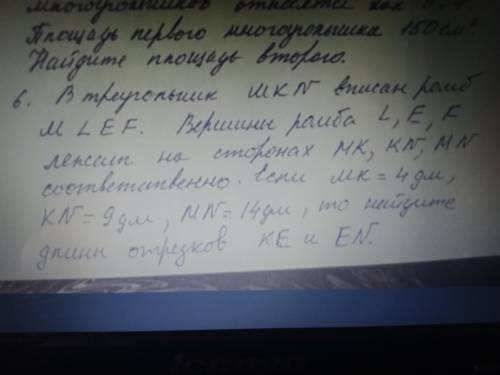 многоугольников относятся как
Площадь первого многоугольника 150 см².
Найдите площадь второго.
6. В треугольник MKN вписан ромб
MLEF. Вершины ромба L, E, F
лежат на сторонах MK, KN, MN
соответственно. Если MK = 4 дм,
KN = 9 дм, MN = 14 дм, то найдите
длины отрезков KE и EN.